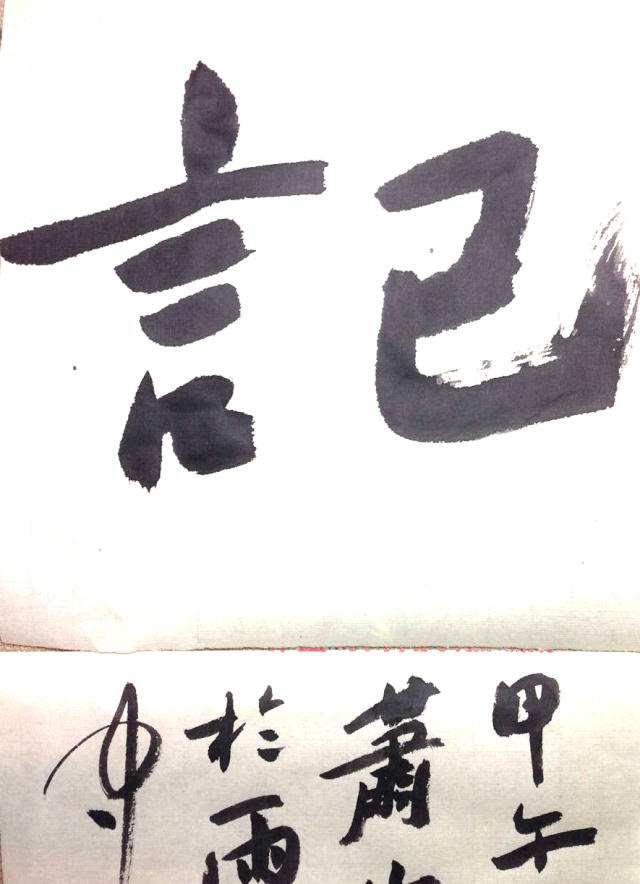 記
甲午
蕭
於雨